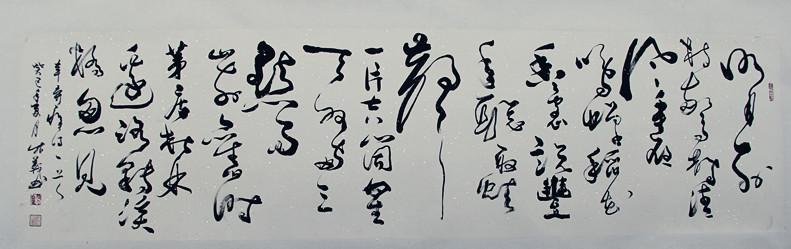 明月别
枝惊鹊清
风半夜
鸣蝉稻花
香里说丰
年听取蛙
声
一片七八个星
天外两三
点雨
山前旧时
茅店社林
边路转溪
桥忽见
辛弃疾词一首
癸巳年夏月书